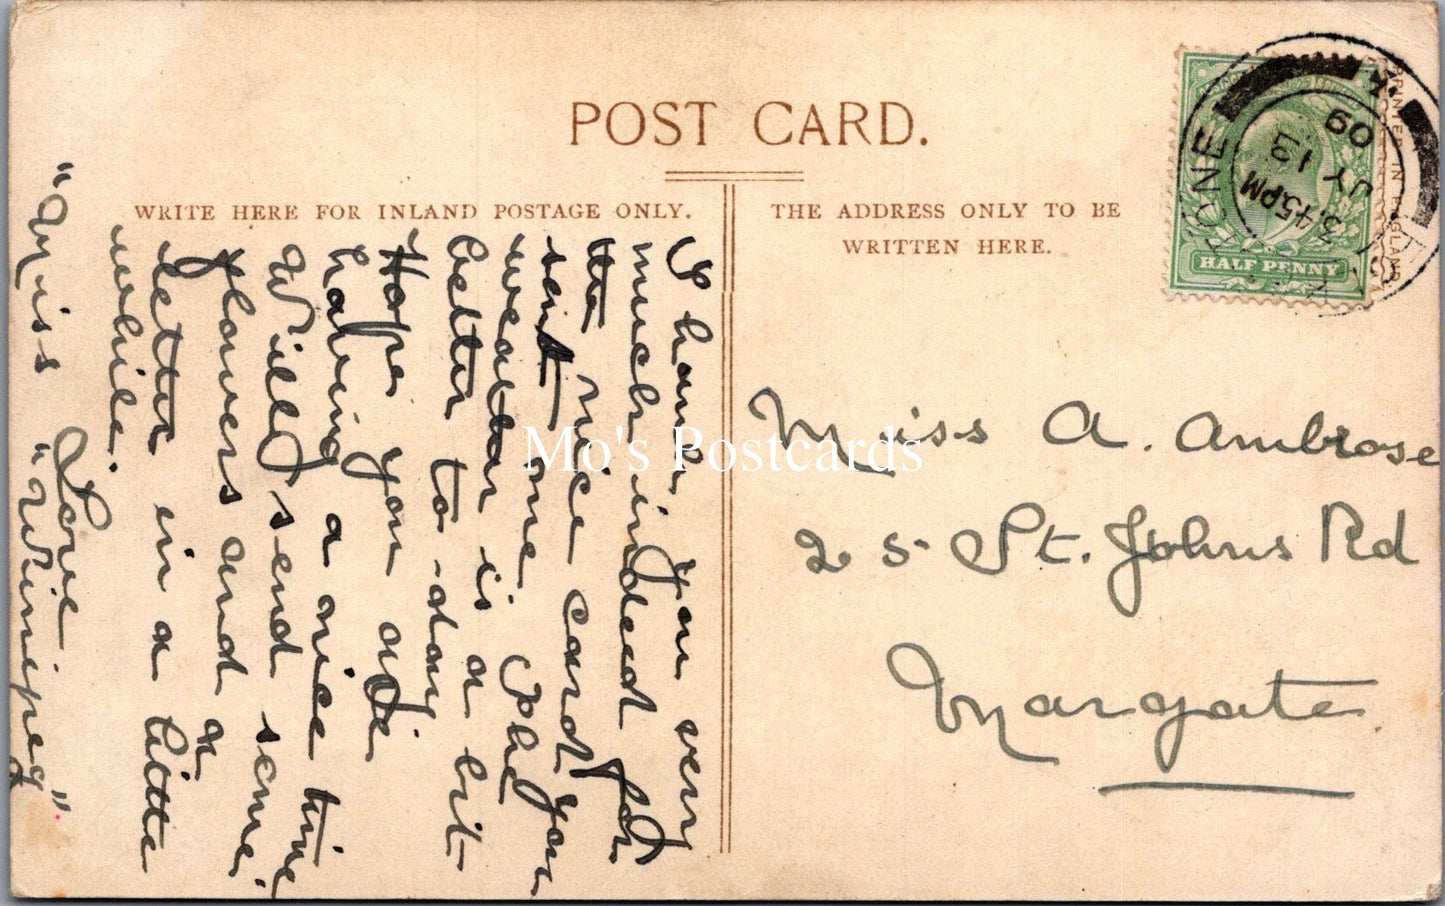 POST CARD.
WRITE HERE FOR INLAND POSTAGE ONLY.
THE ADDRESS ONLY TO BE
WRITTEN HERE.
PRINTED IN ENGLAND
HALF PENNY
3.45 PM
JY 13
09
Thank you very
much indeed for
the nice card you
sent me. Glad
weather is a bit
better to-day
Hope you are
having a nice time
Will send some
flowers and a
letter in a little
while.
Love
"Miss "Winipeg"
Miss A. Ambrose
25 St. Johns Rd
Margate.
Mo's Postcards